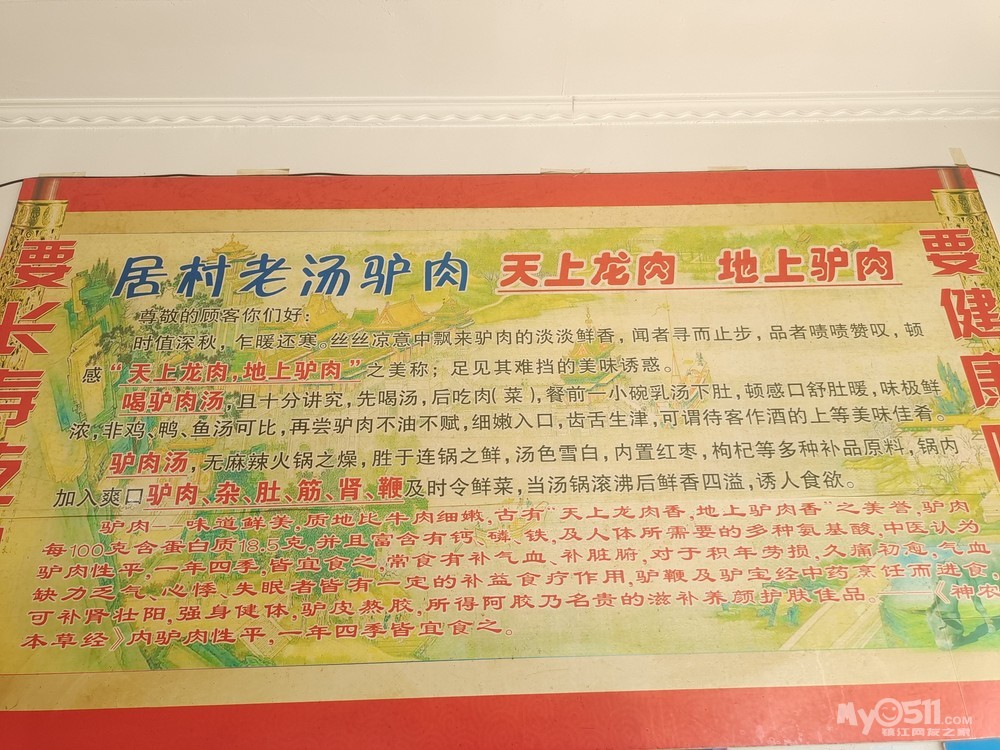 居村老汤驴肉 天上龙肉 地上驴肉
要长寿
要健康
尊敬的顾客你们好:
时值深秋，乍暖还寒。丝丝凉意中飘来驴肉的淡淡鲜香，闻者寻而止步，品者啧啧赞叹，顿
感“天上龙肉,地上驴肉”之美称；足见其难挡的美味诱惑。
喝驴肉汤,且十分讲究,先喝汤,后吃肉(菜),餐前一小碗乳汤下肚,顿感口舒肚暖,味极鲜
浓,非鸡、鸭、鱼汤可比,再尝驴肉不油不赋,细嫩入口,齿舌生津,可谓待客作酒的上等美味佳肴。
驴肉汤,无麻辣火锅之燥,胜于连锅之鲜,汤色雪白,内置红枣,枸杞等多种补品原料,锅内
加入爽口驴肉、杂、肚、筋、肾、鞭及时令鲜菜,当汤锅滚沸后鲜香四溢,诱人食欲。
驴肉一一味道鲜美,质地比牛肉细嫩,古有“天上龙肉香,地上驴肉香”之美誉,驴肉
每100克含蛋白质18.5克,并且富含有钙、磷、铁,及人体所需要的多种氨基酸,中医认为
驴肉性平,一年四季,皆宜食之,常食有补气血、补脏腑,对于积年劳损,久痛初愈,气血
缺力乏气、心悸、失眠者皆有一定的补益食疗作用,驴鞭及驴宝经中药烹饪而进食,
可补肾壮阳,强身健体,驴皮熬胶,所得阿胶乃名贵的滋补养颜护肤佳品。——《神农
本草经》内驴肉性平,一年四季皆宜食之。
My0511.COM
镇江网友之家